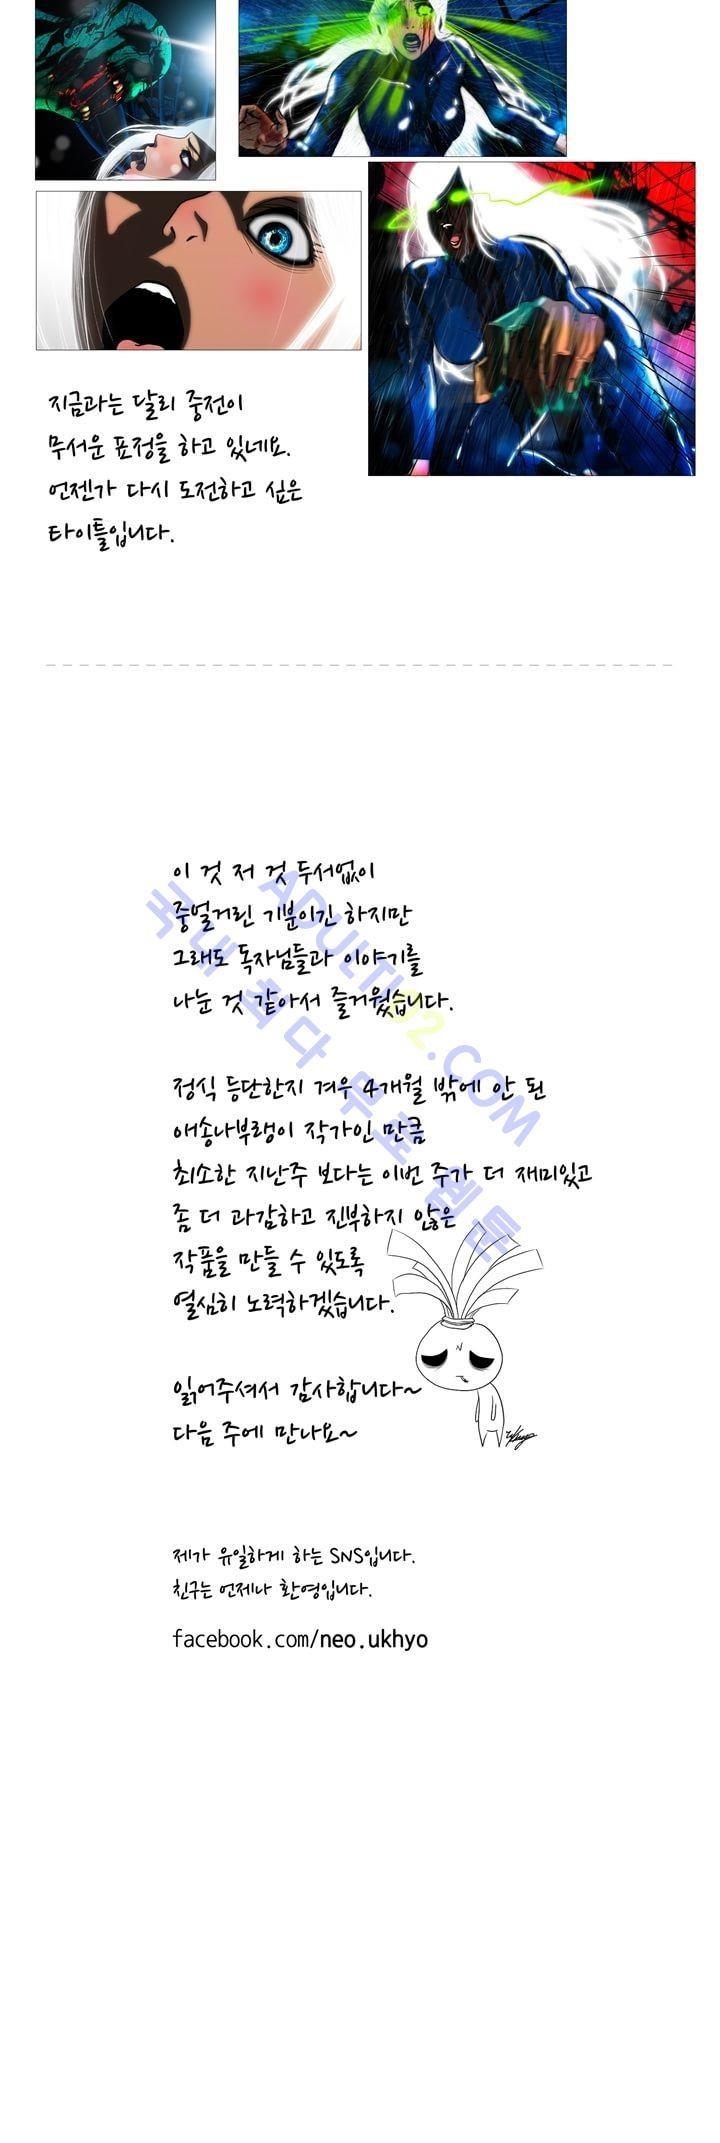 지금과는 달리 중전이
무서운 표정을 하고 있네요.
언젠가 다시 도전하고 싶은
타이틀입니다.
이 것 저 것 두서없이
중얼거린 기분이긴 하지만
그래도 독자님들과 이야기를
나눈 것 같아서 즐거웠습니다.
정식 등단한지 겨우 4개월 밖에 안 된
애송나부랭이 작가인 만큼
최소한 지난주 보다는 이번 주가 더 재미있고
좀 더 과감하고 진부하지 않은
작품을 만들 수 있도록
열심히 노력하겠습니다.
읽어주셔서 감사합니다~
다음 주에 만나요~
제가 유일하게 하는 SNS입니다.
친구는 언제나 환영입니다.
facebook.com/neo.ukhyo
ADULTI92.COM
국내 최다 무료 웹툰